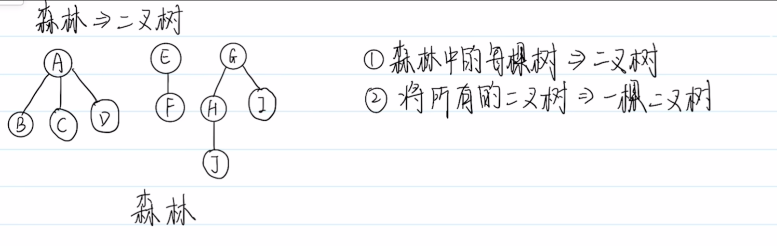 森林⇒二叉树
A
E
G
B
C
D
F
H
I
J
①森林中的每棵树⇒二叉树
②将所有的二叉树⇒一棵二叉树
森林